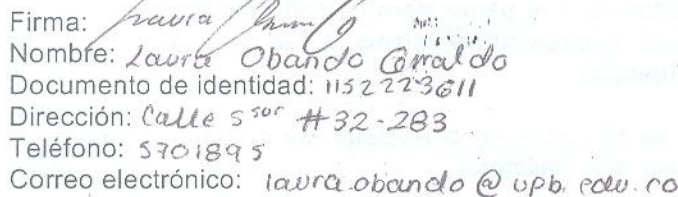 Firma: Laura
Nombre: Laura Obando Corraldo
Documento de identidad: 1152223611
Dirección: Calle 5 sur #32-283
Teléfono: 5701895
Correo electrónico: laura.obando@upb.edu.co